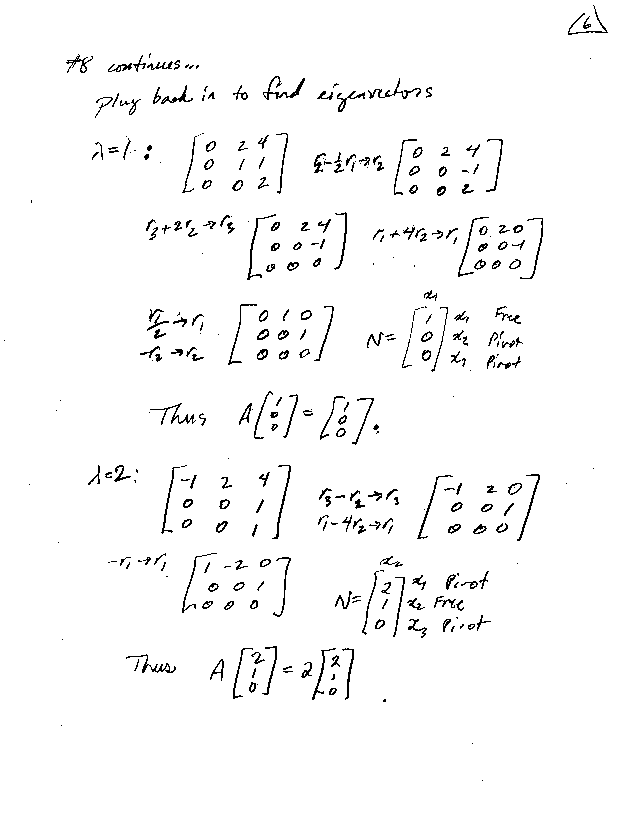 (6)
#8 continues...
Plug back in to find eigenvectors
λ=1: [0 2 4; 0 1 1; 0 0 2] r₂-½r₁→r₂ [0 2 4; 0 0 -1; 0 0 2]
r₃+2r₂→r₃ [0 2 4; 0 0 -1; 0 0 0] r₁+4r₂→r₁ [0 2 0; 0 0 -1; 0 0 0]
r₁/2→r₁ -r₂→r₂ [0 1 0; 0 0 1; 0 0 0] N= x₁ [1; 0; 0] x₁ Free x₂ Pivot x₃ Pivot
Thus A[1; 0; 0] = [1; 0; 0].
λ=2: [-1 2 4; 0 0 1; 0 0 1] r₃-r₂→r₃ r₁-4r₂→r₁ [-1 2 0; 0 0 1; 0 0 0]
-r₁→r₁ [1 -2 0; 0 0 1; 0 0 0] N= x₂ [2; 1; 0] x₁ Pivot x₂ Free x₃ Pivot
Thus A[2; 1; 0] = 2[2; 1; 0].